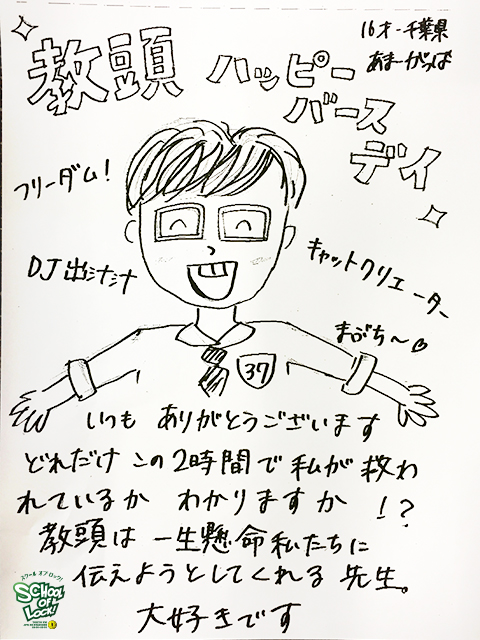 16才-千葉県
あまーがっぱ
教頭 ハッピー
バース
デイ
フリーダム!
DJ出シナシナ
キャットクリエーター
まぶち〜♡
37
いつも ありがとうございます
どれだけ この2時間で 私が 救わ
れているか わかりますか !?
教頭は 一生懸命私たちに
伝えようとしてくれる 先生。
大好きです
スクールオブロック!
SCHOOL
OF
LOCK!